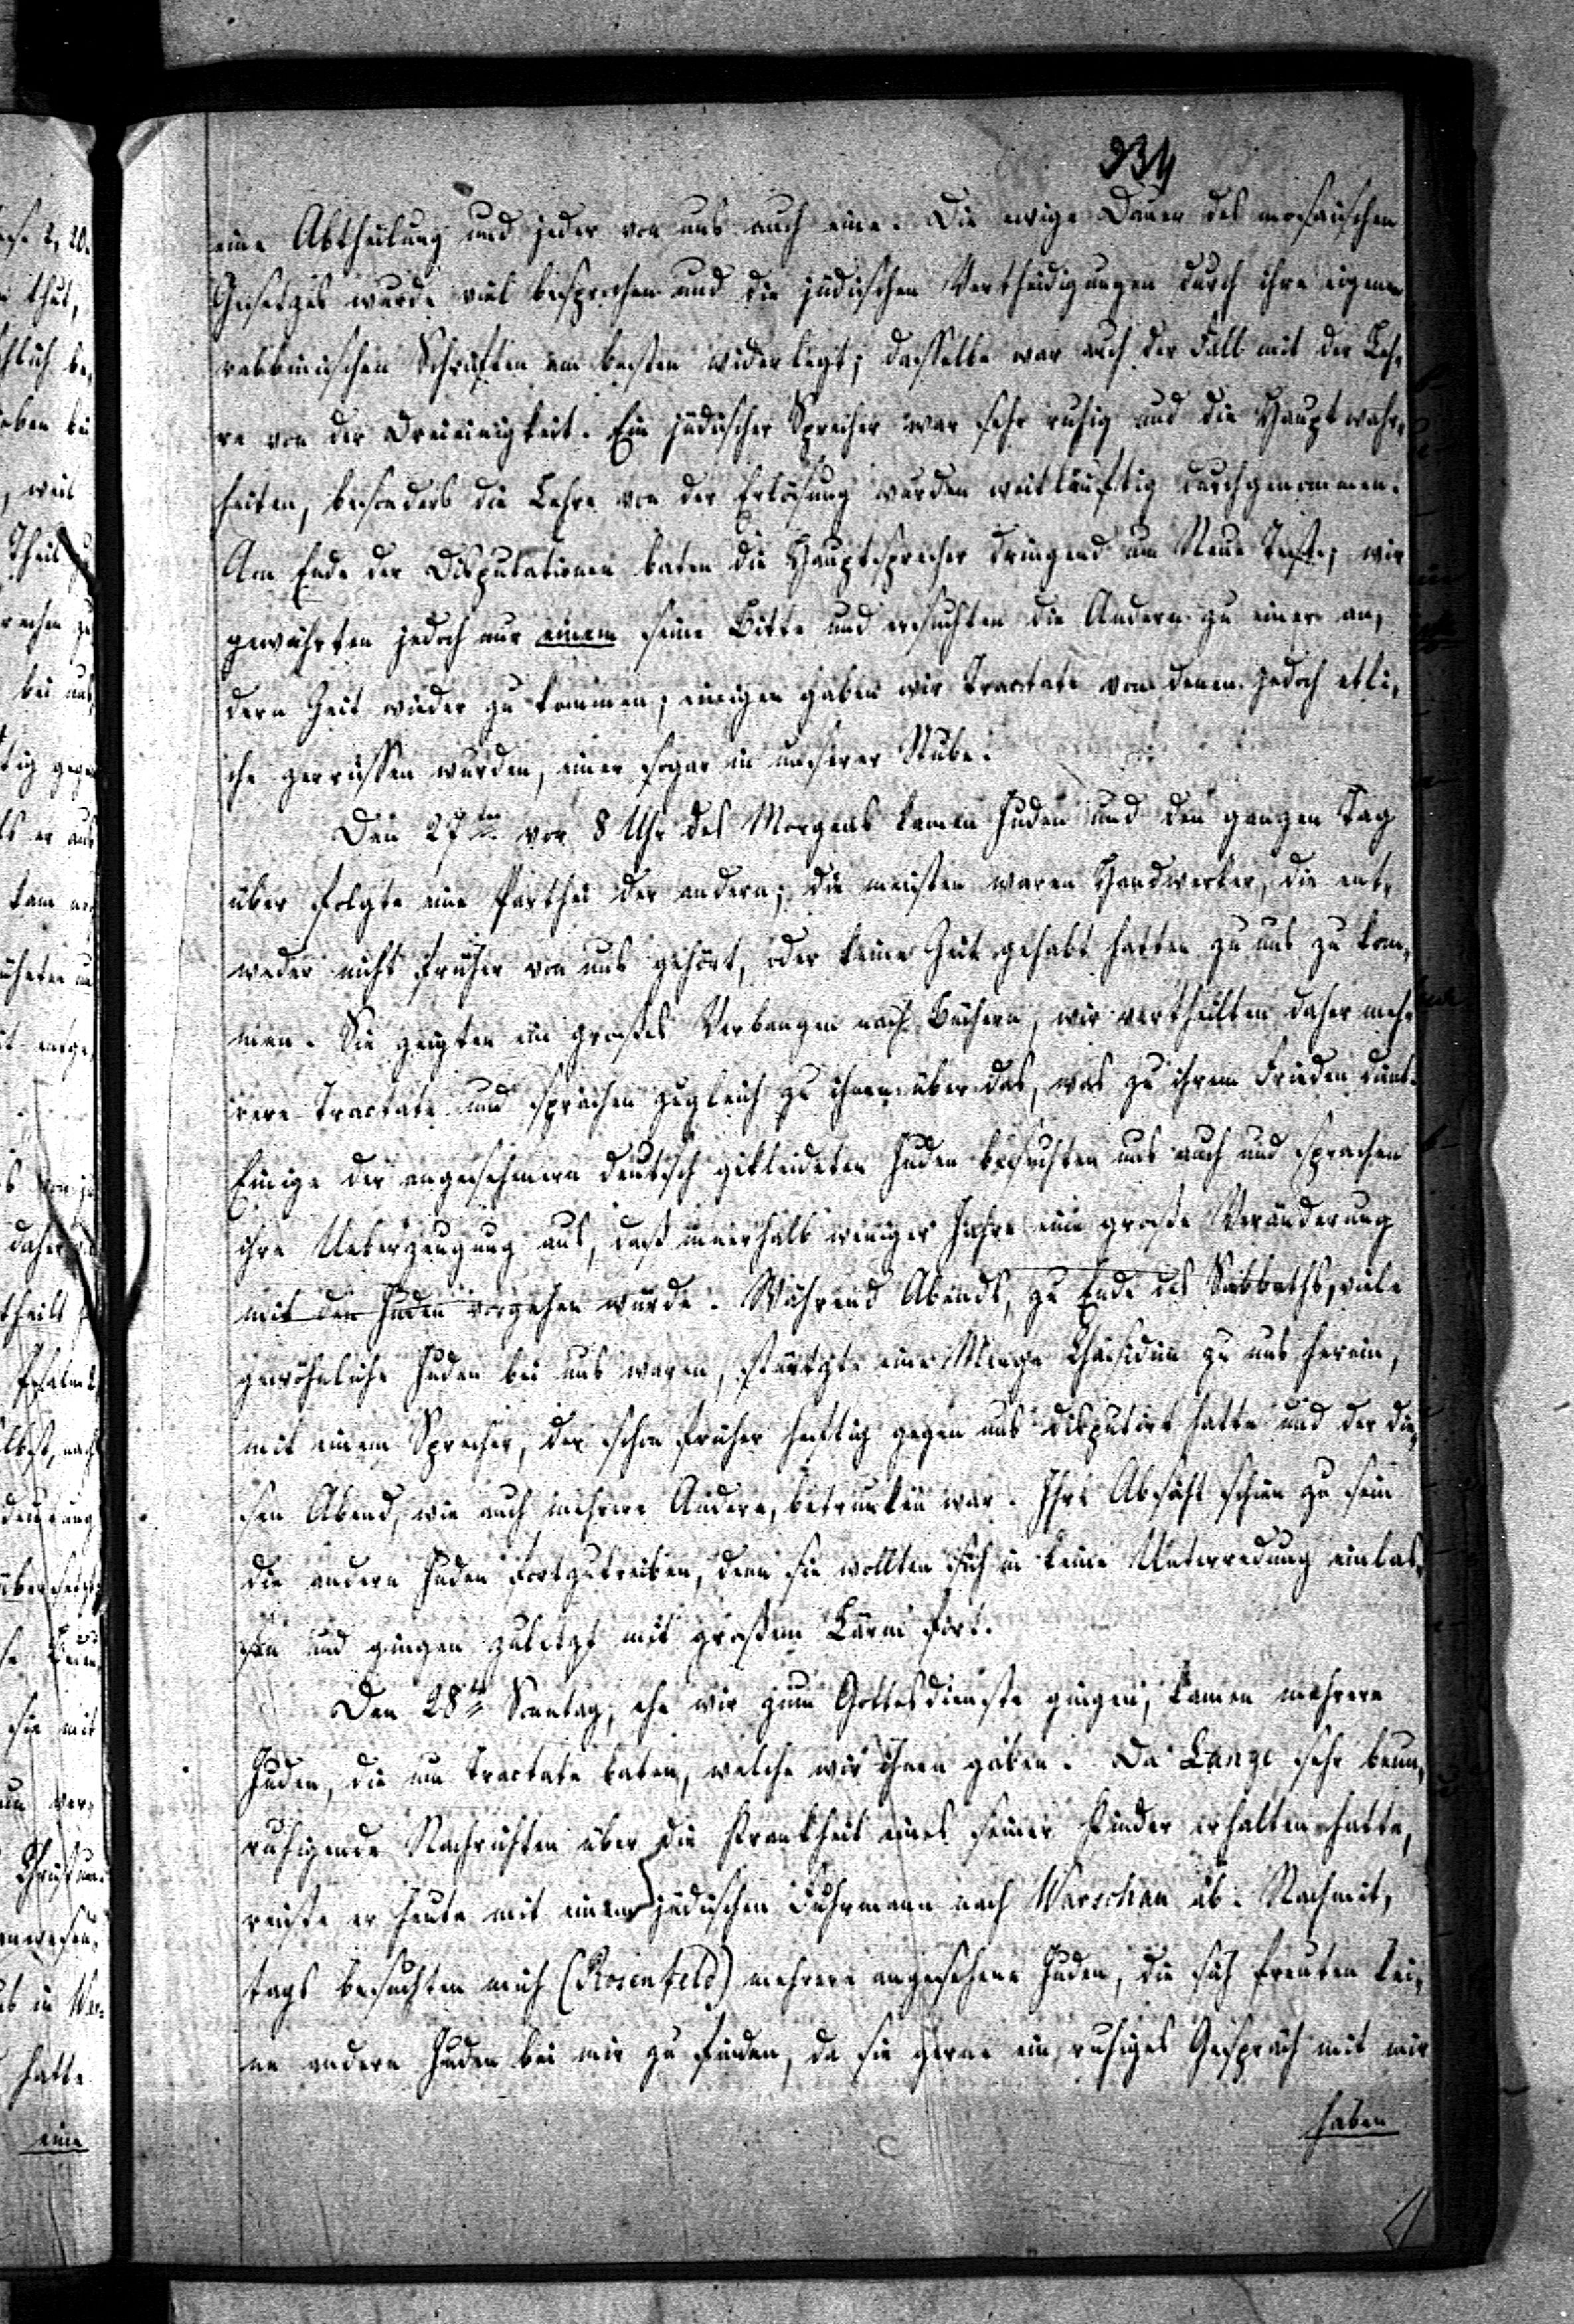 234
eine Abtheilung und jeder von uns auch eine. Die ewige Dauer des mosaischen
Gesetzes wurde viel besprochen und die jüdischen Vertheidigungen durch ihre eigenen
rabbinischen Schriften am besten widerlegt; dasselbe war auch der Fall mit der Leh-
re von der Dreieinigkeit. Ein jüdischer Sprecher war sehr ruhig und die Hauptwahr-
heiten, besonders die Lehre von der Erlösung wurden weitläuftig durchgenommen.
Am Ende der Disputationen baten die Hauptsprecher dringend um Neue Test.; wir
gewährten jedoch nur einem seine Bitte und ersuchten die Andern zu einer an-
dern Zeit wieder zu kommen; einigen gaben wir Tractate von denen jedoch etli-
che zerrissen wurden, einer sogar in unserer Stube.
Den 27ten vor 8 Uhr des Morgens kamen Juden und den ganzen Tag
über folgte eine Parthei der andern; die meisten waren Handwerker, die ent-
weder nicht früher von uns gehört, oder keine Zeit gehabt hatten zu uns zu kom-
men. Sie zeigten ein großes Verlangen nach Büchern, wir vertheilten daher meh-
rere Tractate und sprachen zugleich zu ihnen über das, was zu ihrem Frieden dient.
Einige der angesehenern deutsch gekleideten Juden besuchten uns auch und sprachen
ihre Ueberzeugung aus, daß innerhalb weniger Jahre eine große Veränderung
mit den Juden vorgehen würde. Während Abends, zu Ende des Sabbaths, viele
gewöhnliche Juden bei uns waren, stürtzte eine Menge Chasidim zu uns herein,
mit einem Sprecher, der schon früher heftig gegen uns disputirt hatte und der die-
sen Abend, wie auch mehrere Andere, betrunken war. Ihre Absicht schien zu sein
die andern Juden fortzutreiben, denn sie wollten sich in keine Unterredung einlas-
sen und gingen zuletzt mit großem Lärm fort.
Den 28ten Sonntag, ehe wir zum Gottesdienste gingen, kamen mehrere
Juden, die um Tractate baten, welche wir ihnen gaben. Da Lange sehr beun-
ruhigende Nachrichten über die Krankheit eines seiner Kinder erhalten hatte,
reiste er heute mit einem jüdischen Fuhrmann nach Warschau ab. Nachmit-
tags besuchten mich (Rosenfeld) mehrere angesehene Juden, die sich freuten kei-
ne andern Juden bei mir zu finden, da sie gerne ein ruhiges Gespräch mit mir
haben